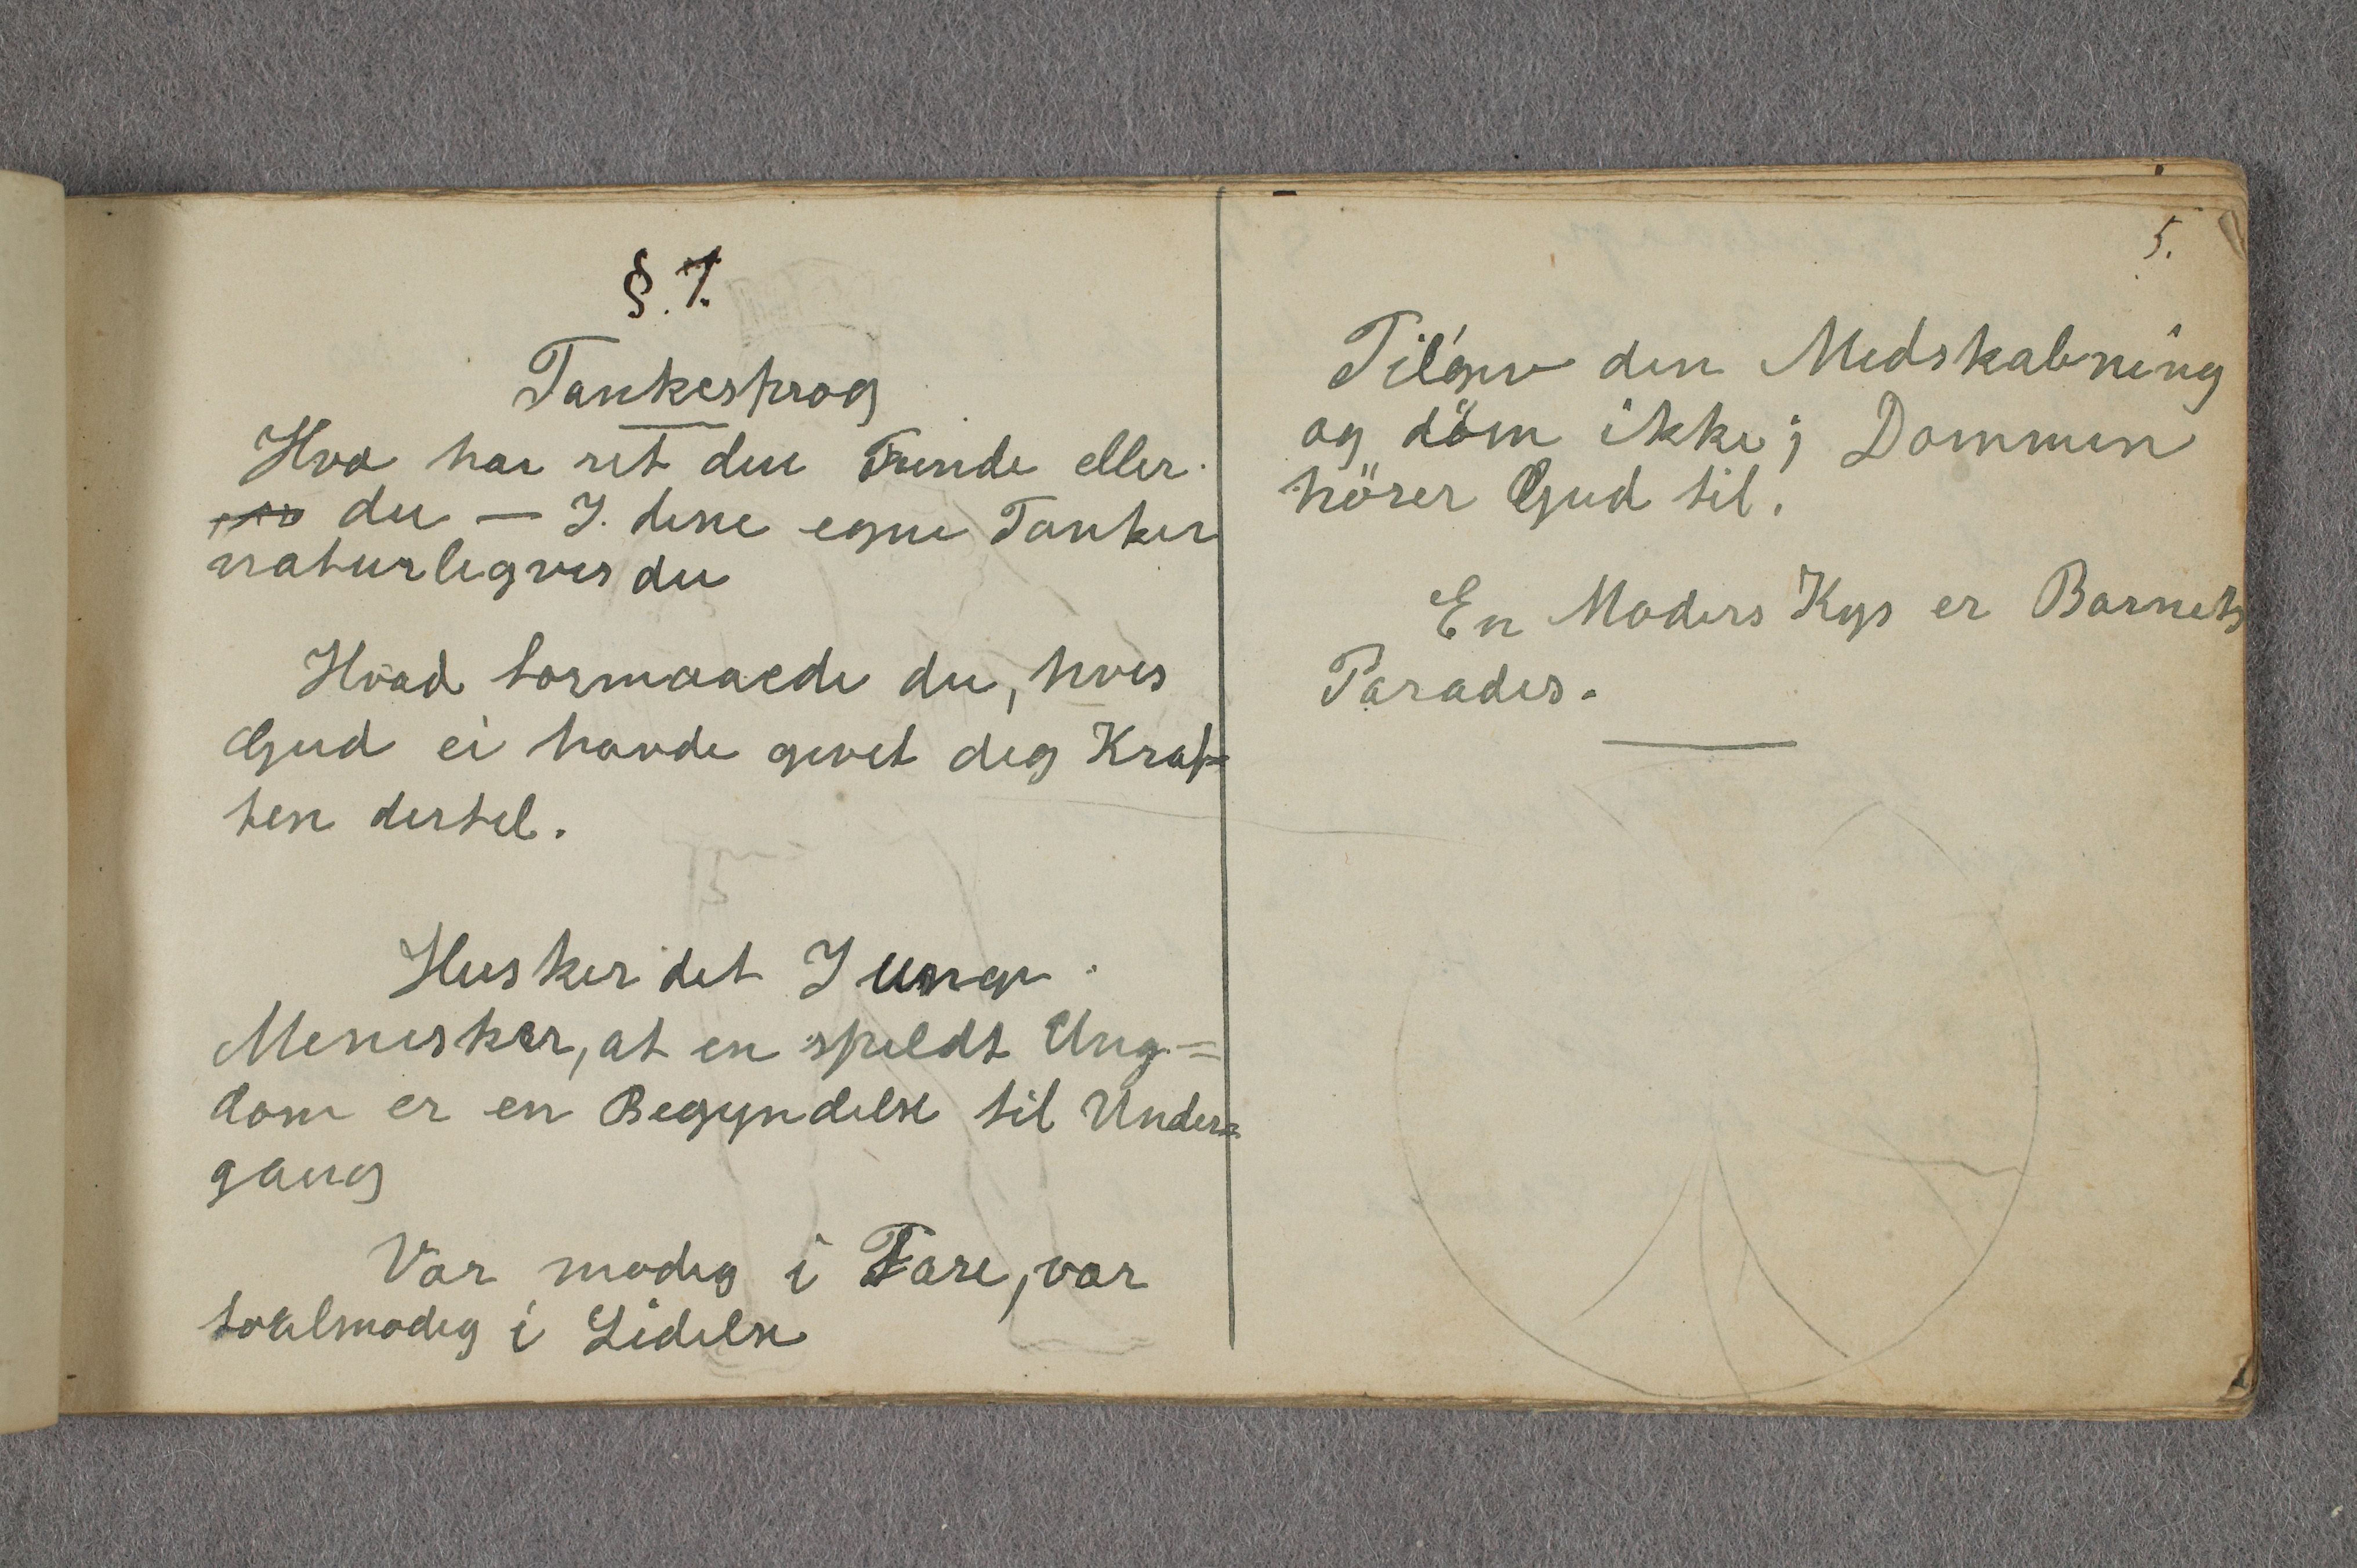 §. 7.
Tankesprog
Hvo har ret din Fiende eller
du — I. dine egne Tanker
naturligvis du
Hvad formaaede du, hvis
Gud ei havde givet dig Kraf-
ten dertil.
Husker det I unge
Menisker, at en spildt Ung=
dom er en Begyndelse til Under=
gang
Vær modig i Fare, vær
taalmodig i Lidelse
5.
Tilgiv din Medskabning
og döm ikke; Dommen
hörer Gud til.
En Moders Kys er Barnets
Paradis.